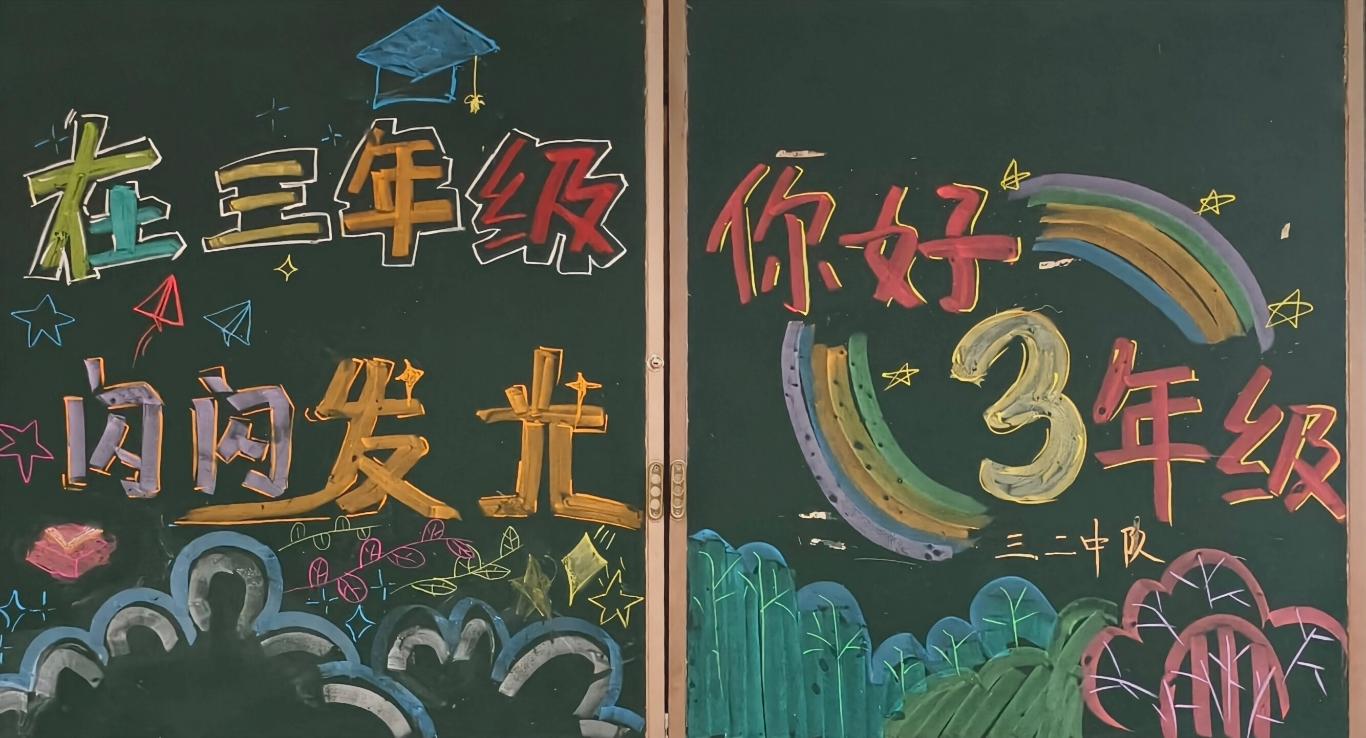 在三年级
闪闪发光
你好
3年级
三二中队